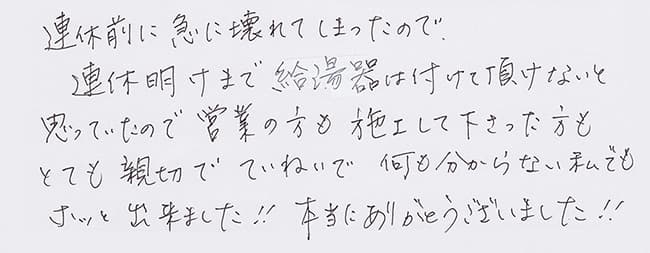 連休前に急に壊れてしまったので、
連休明けまで給湯器は付けて頂けないと
思っていたので営業の方も施工して下さった方も
とても親切でていねいで何も分からない私でも
ホッと出来ました!! 本当にありがとうございました!!